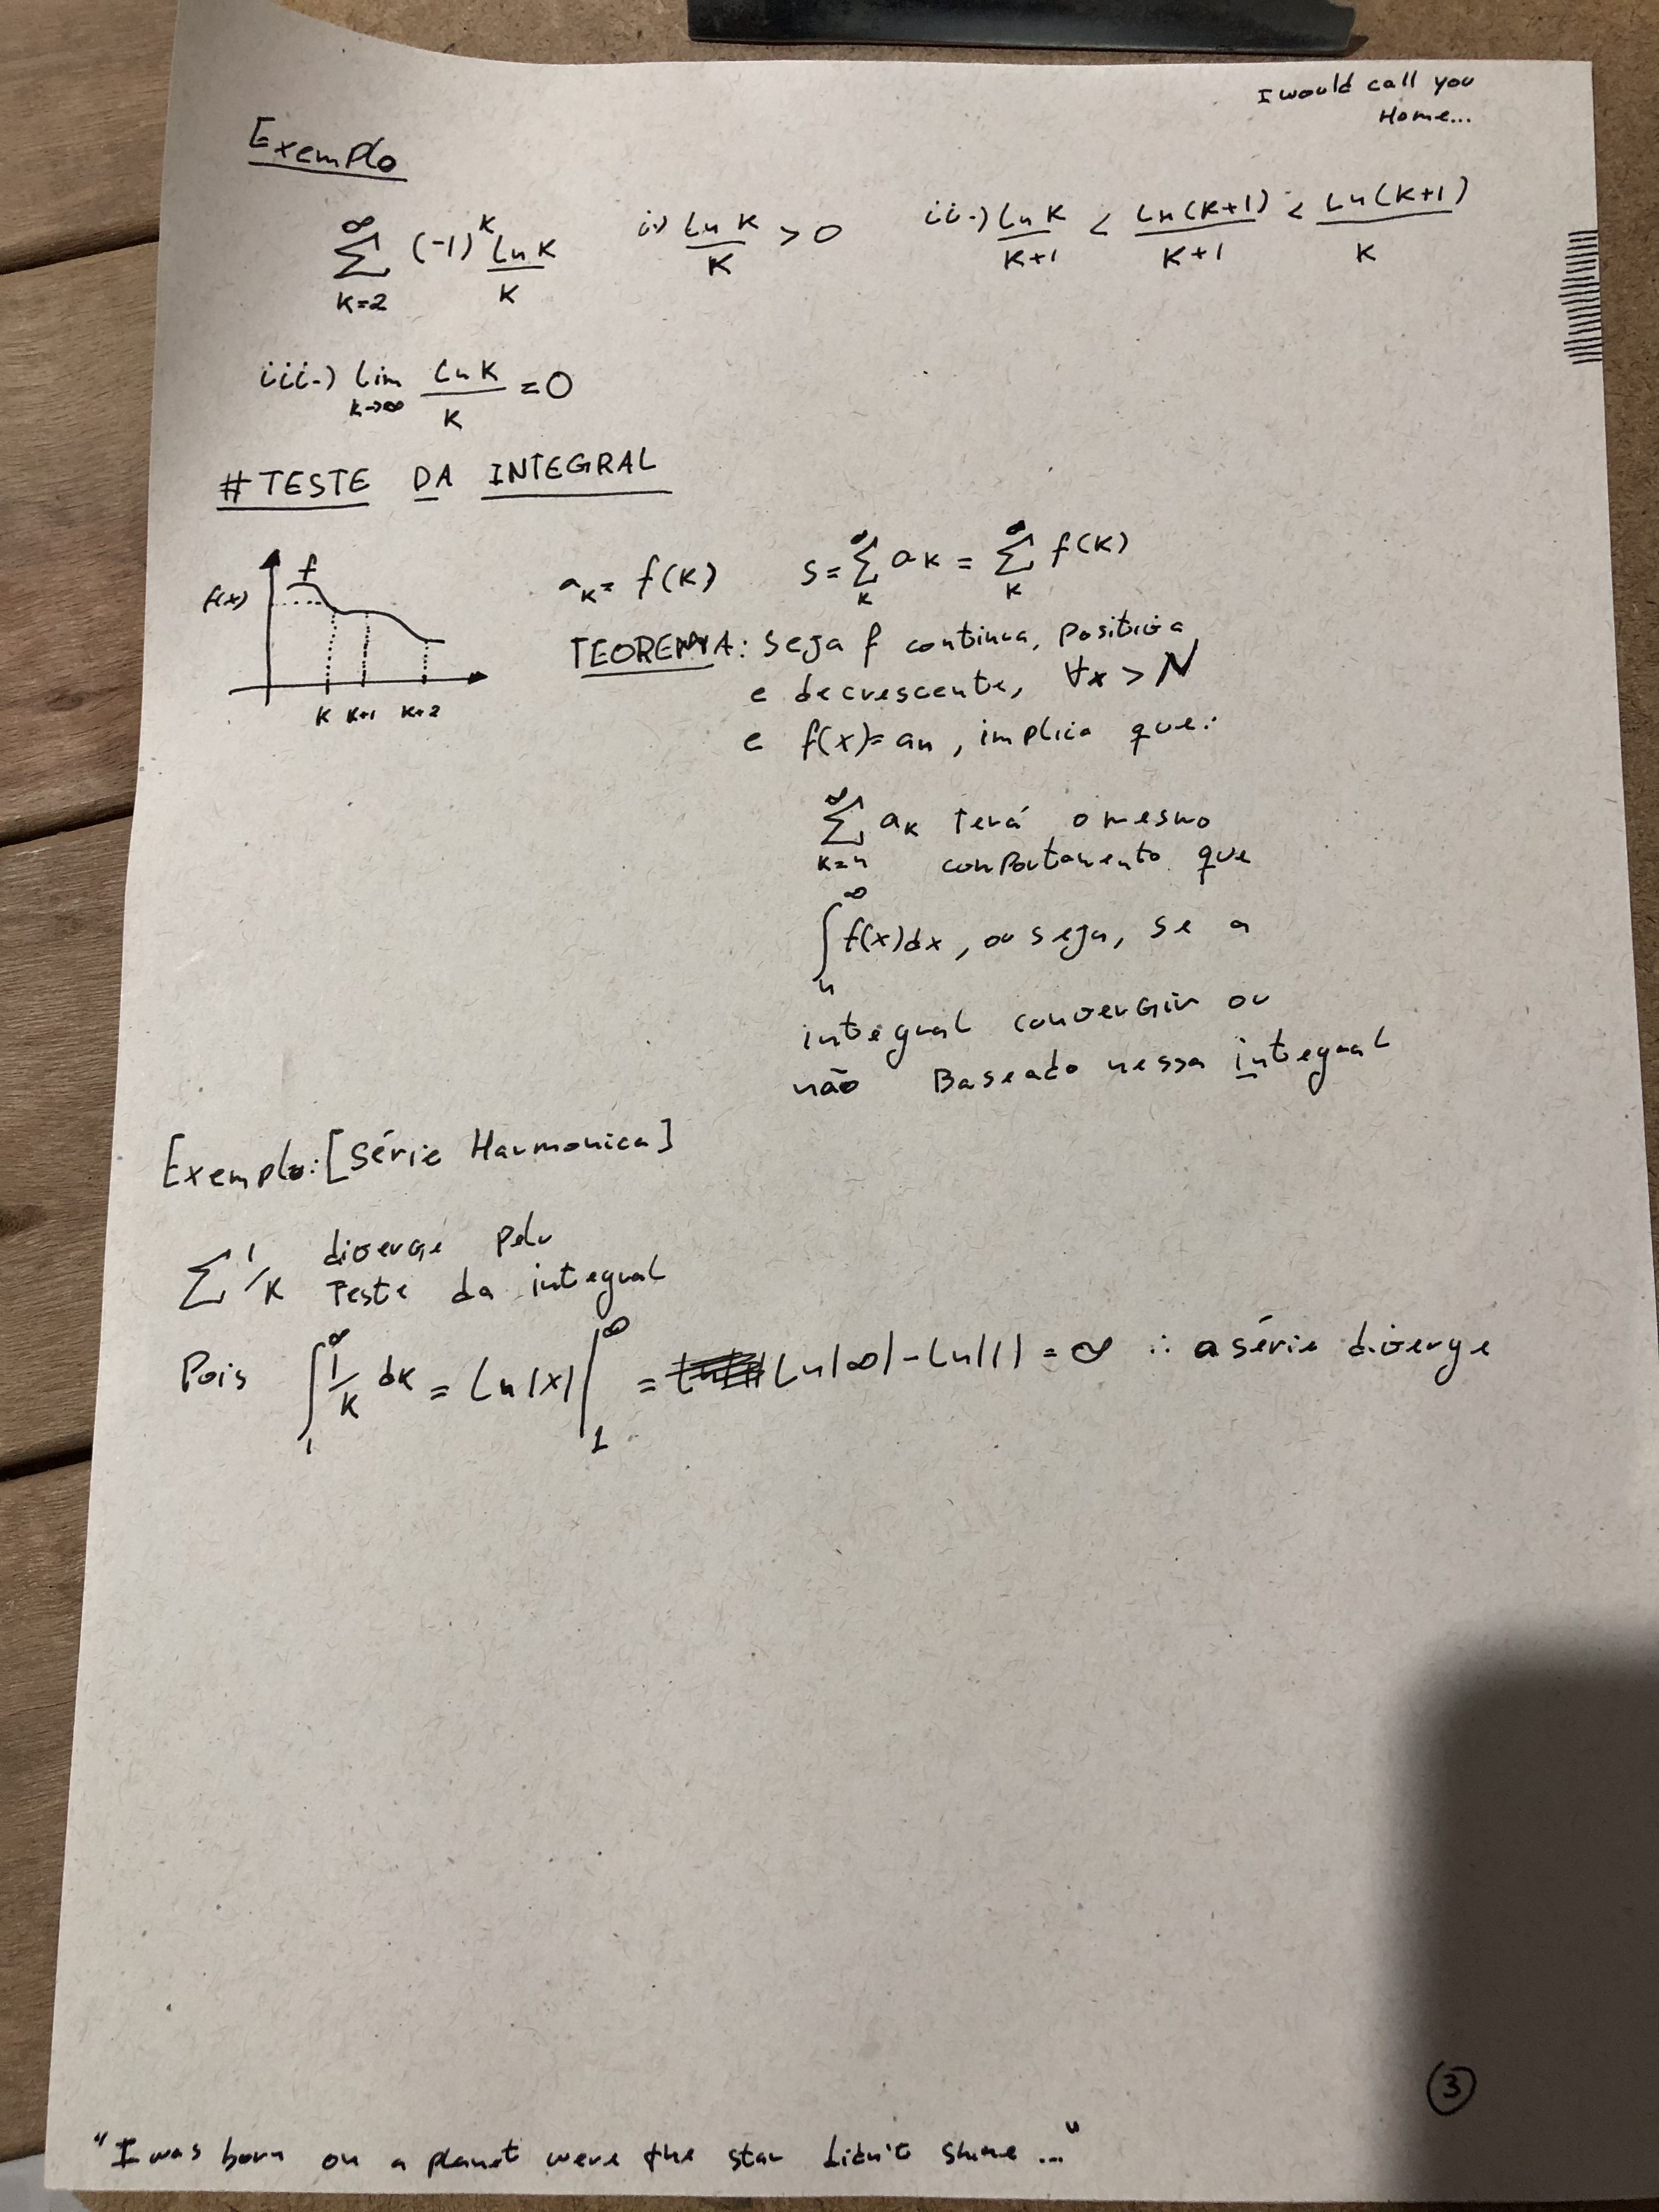 I would call you
Home...
Exemplo
∞ Σ k=2 (-1)^k ln k / k    i-) ln k / k > 0    ii-) ln k / k+1 < ln(k+1) / k+1 < ln(k+1) / k
iii-) lim k→∞ ln k / k = 0
# TESTE DA INTEGRAL
f
f(x)
k k+1 k+2
a_k = f(k)    S = ∞ Σ k a_k = ∞ Σ k f(k)
TEOREMA: Seja f continua, positiva
e decrescente, ∀x > N
e f(x)=an, implica que:
∞ Σ k=n a_k Terá o mesmo
comportamento que
∞ ∫ n f(x)dx, ou seja, se a
integral convergir ou
não Baseado nessa integral
Exemplo: [Série Harmonica]
Σ 1/k diverge pelo
Teste da integral
Pois ∞ ∫ 1 1/k dk = Ln|x| |∞ 1 = Ln|∞| - Ln|1| = ∞ ∴ a série diverge
3
"I was born on a planet were the star didn't shine ..."